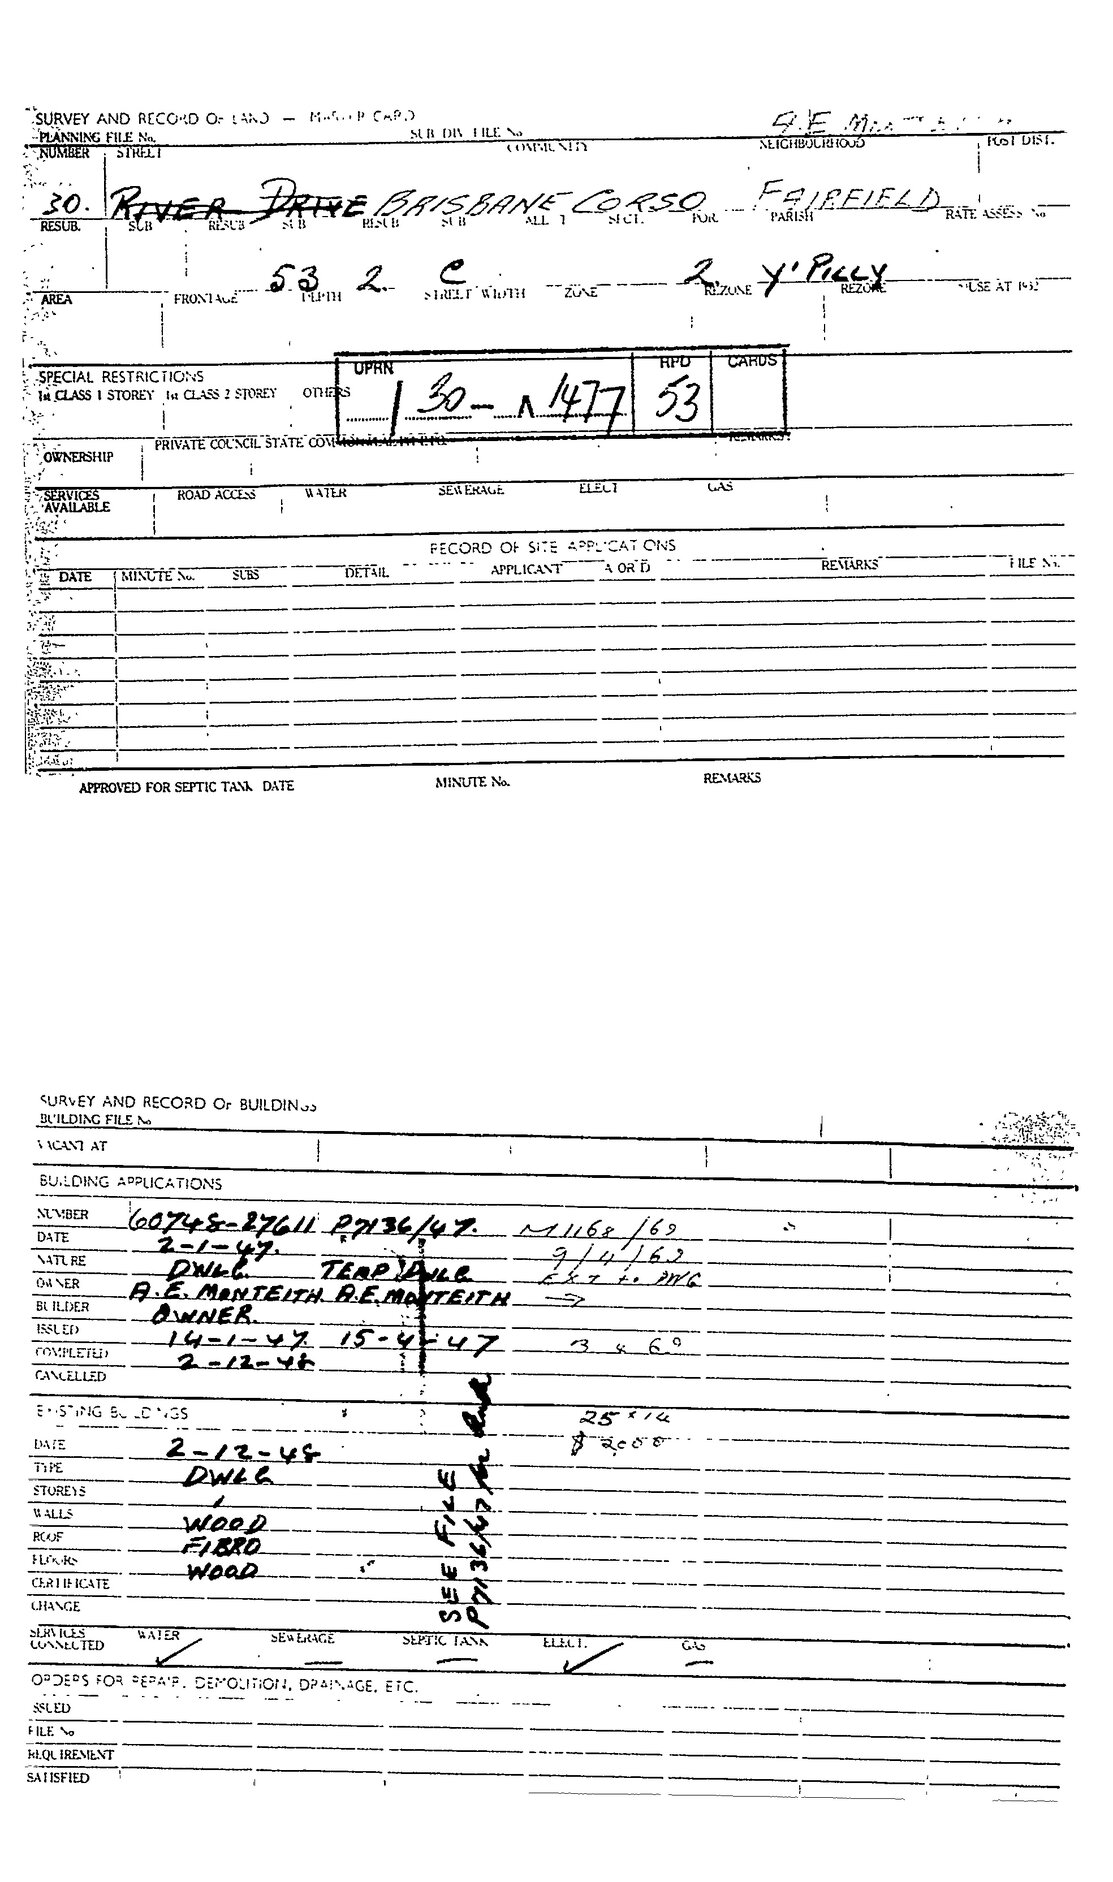 SURVEY AND RECORD OF LAND — MASTER CARD
PLANNING FILE No. SUB DIV. FILE No
NUMBER STREET COMMUNITY NEIGHBOURHOOD POST DIST.
30. RIVER DRIVE BRISBANE CORSO FAIRFIELD
RESUB. SUB RESUB SUB RESUB SUB ALL T SECT. POR. PARISH RATE ASSESS No
53 2. C 2. Y'PILLY
AREA FRONTAGE DEPTH STREET WIDTH ZONE REZONE REZONE USE AT
SPECIAL RESTRICTIONS
1st CLASS 1 STOREY 1st CLASS 2 STOREY OTHERS
UPRN RPD CARDS
30 - 1477 53
PRIVATE COUNCIL STATE REMARKS
OWNERSHIP
SERVICES AVAILABLE ROAD ACCESS WATER SEWERAGE ELECT GAS
RECORD OF SITE APPLICATIONS
DATE MINUTE No. SUBS DETAIL APPLICANT A OR D REMARKS FILE No.
APPROVED FOR SEPTIC TANK DATE MINUTE No. REMARKS
SURVEY AND RECORD OF BUILDINGS
BUILDING FILE No
VACANT AT
BUILDING APPLICATIONS
NUMBER 60748-27611 P7136/47. M1168/69
DATE 2-1-47. 9/4/69
NATURE DWLG. TEMP DWLG EXT to DWG
OWNER A.E. MONTEITH A.E. MONTEITH →
BUILDER OWNER.
ISSUED 14-1-47. 15-4-47
COMPLETED 2-12-48
CANCELLED
EXISTING BUILDINGS 25 x 14
$ 2000
DATE 2-12-48
TYPE DWLG
STOREYS 1
WALLS WOOD
ROOF FIBRO
FLOORS WOOD
CERTIFICATE
CHANGE
SEE FILE
P7136/47 for
SERVICES CONNECTED WATER ✓ SEWERAGE — SEPTIC TANK — ELECT. ✓ GAS —
ORDERS FOR REPAIR, DEMOLITION, DRAINAGE, ETC.
ISSUED
FILE No
REQUIREMENT
SATISFIED